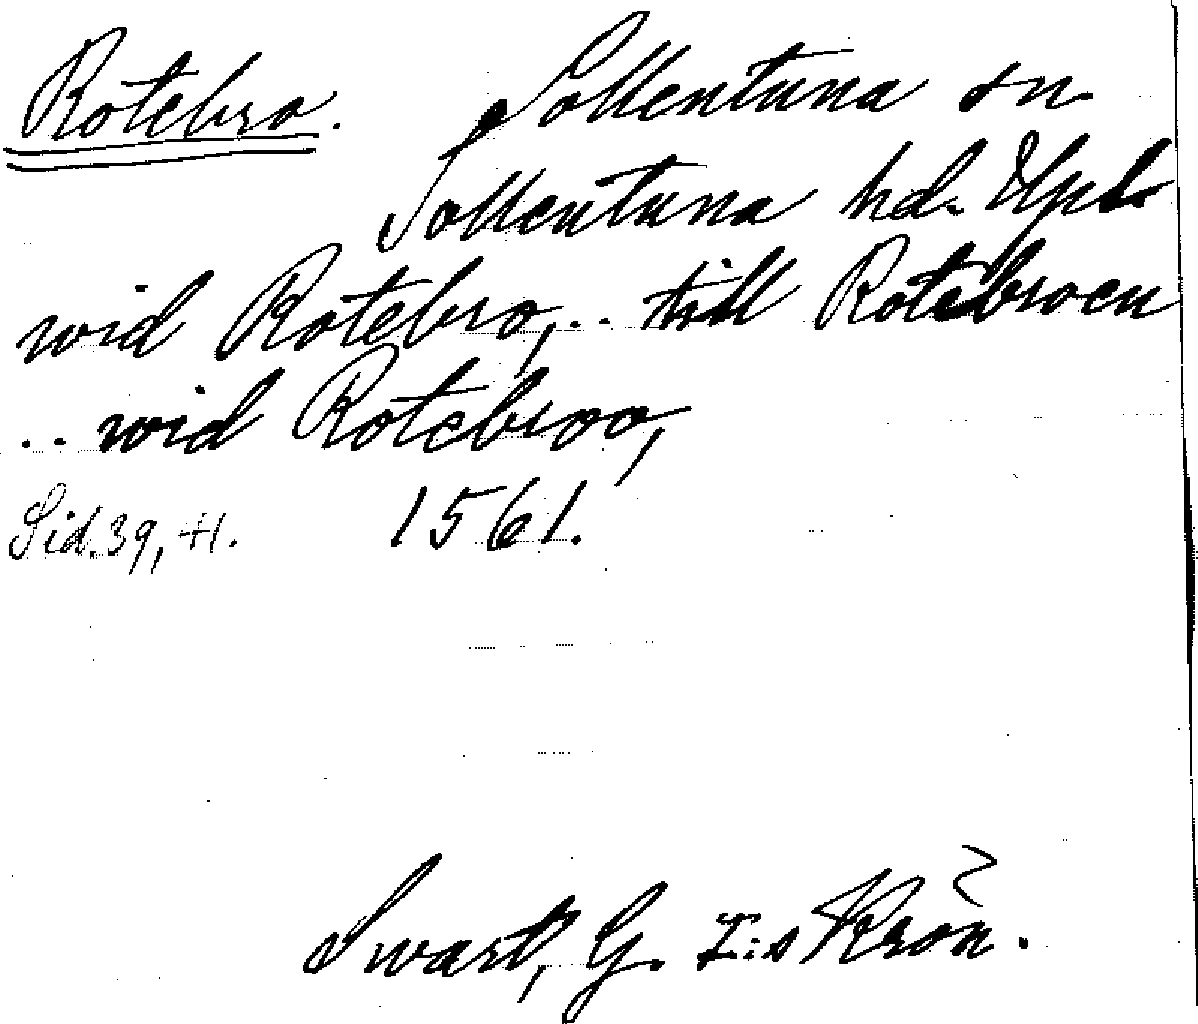 Rotebro. Sollentuna sn
Sollentuna hd. Upl.
wid Rotebro, .. till Rotebroen
.. wid Rotebroo,
Sid. 39, 41. 1561.
Swart, G. I:s Krön.